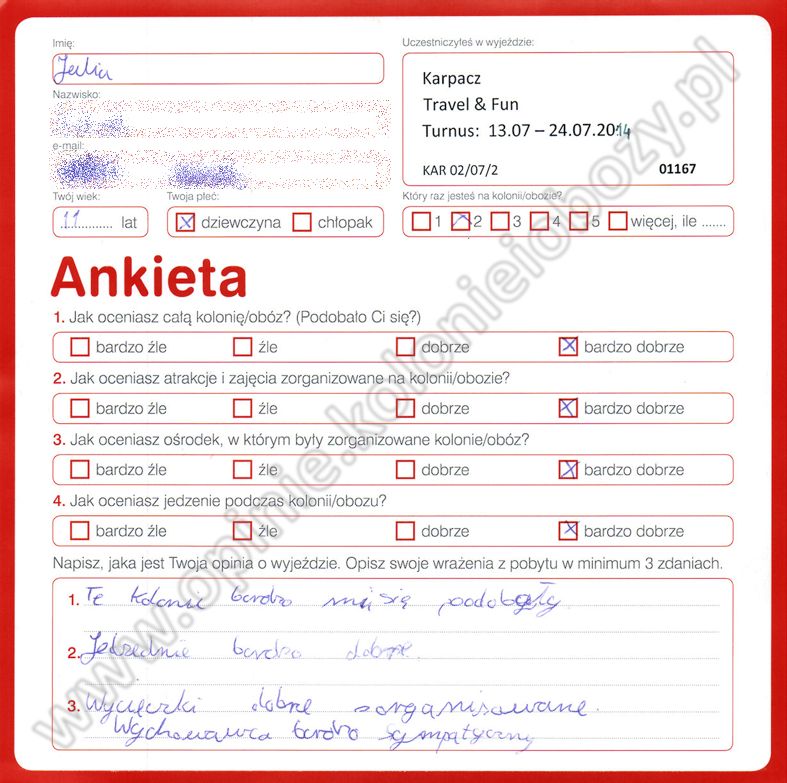 Imię:
Julia
Nazwisko:
e-mail:
Twój wiek:
11 lat
Twoja płeć:
dziewczyna chłopak
Uczestniczyłeś w wyjeździe:
Karpacz
Travel & Fun
Turnus: 13.07 – 24.07.2014
KAR 02/07/2 01167
Który raz jesteś na kolonii/obozie?
1 2 3 4 5 więcej, ile .......
Ankieta
1. Jak oceniasz całą kolonię/obóz? (Podobało Ci się?)
bardzo źle źle dobrze bardzo dobrze
2. Jak oceniasz atrakcje i zajęcia zorganizowane na kolonii/obozie?
bardzo źle źle dobrze bardzo dobrze
3. Jak oceniasz ośrodek, w którym były zorganizowane kolonie/obóz?
bardzo źle źle dobrze bardzo dobrze
4. Jak oceniasz jedzenie podczas kolonii/obozu?
bardzo źle źle dobrze bardzo dobrze
Napisz, jaka jest Twoja opinia o wyjeździe. Opisz swoje wrażenia z pobytu w minimum 3 zdaniach.
1. Te kolonie bardzo mi się podobały.
2. Jedzednie bardzo dobrze.
3. Wycieczki dobrze zorganisowane.
Wychowawca bardzo sympatyczny
www.opinie.kolonieiobozy.pl